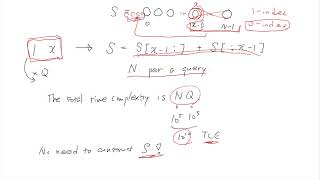 S 1-index
0 x-1 N-1 0-index
1 x → S = S[x-1:] + S[:x-1]
x Q
N per a query
The total time complexity is NQ
10^5 10^5
10^10 TLE
No need to construct S !